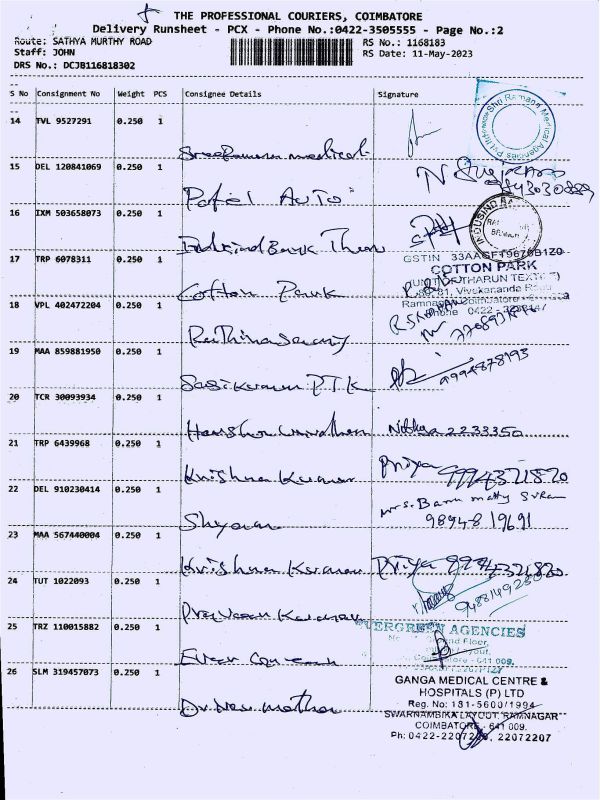 THE PROFESSIONAL COURIERS, COIMBATORE
Delivery Runsheet - PCX - Phone No.:0422-3505555 - Page No.:2
Route: SATHYA MURTHY ROAD
RS No.: 1168183
Staff: JOHN
RS Date: 11-May-2023
DRS No.: DCJB116818302
S No Consignment No Weight PCS Consignee Details Signature
14 TVL 9527291 0.250 1
Shri Ramana Medical Agencies Pvt
medical
15 DEL 120841069 0.250 1
Patel Auto
16 IXM 503658073 0.250 1
IndusindBank
GSTIN 33AAGFT9676B1Z0
17 TRP 6078311 0.250 1
COTTON PARK
Cotton Park
Vivekananda Road
Ramnagar, Coimbatore
Phone 0422
18 VPL 402472204 0.250 1
Rathinasamy
19 MAA 859881950 0.250 1
Sasikumar PTK
9994878193
20 TCR 30093934 0.250 1
Nithya 2233350
21 TRP 6439968 0.250 1
Krishna Kumar Priya 9994321820
22 DEL 910230414 0.250 1
Mrs. Banu
Shyam 98948 19691
23 MAA 567440004 0.250 1
Krishna Kumar Priya 9994321820
24 TUT 1022093 0.250 1
Praveen Kumar
25 TRZ 110015882 0.250 1
EVERGREEN AGENCIES
Floor,
Layout,
Coimbatore - 641 009.
26 SLM 319457073 0.250 1
GANGA MEDICAL CENTRE &
HOSPITALS (P) LTD
Reg. No: 181-5600/1994
SWARNAMBIKA LAYOUT, RAMNAGAR
COIMBATORE - 641 009.
Ph: 0422-2207220, 22072207